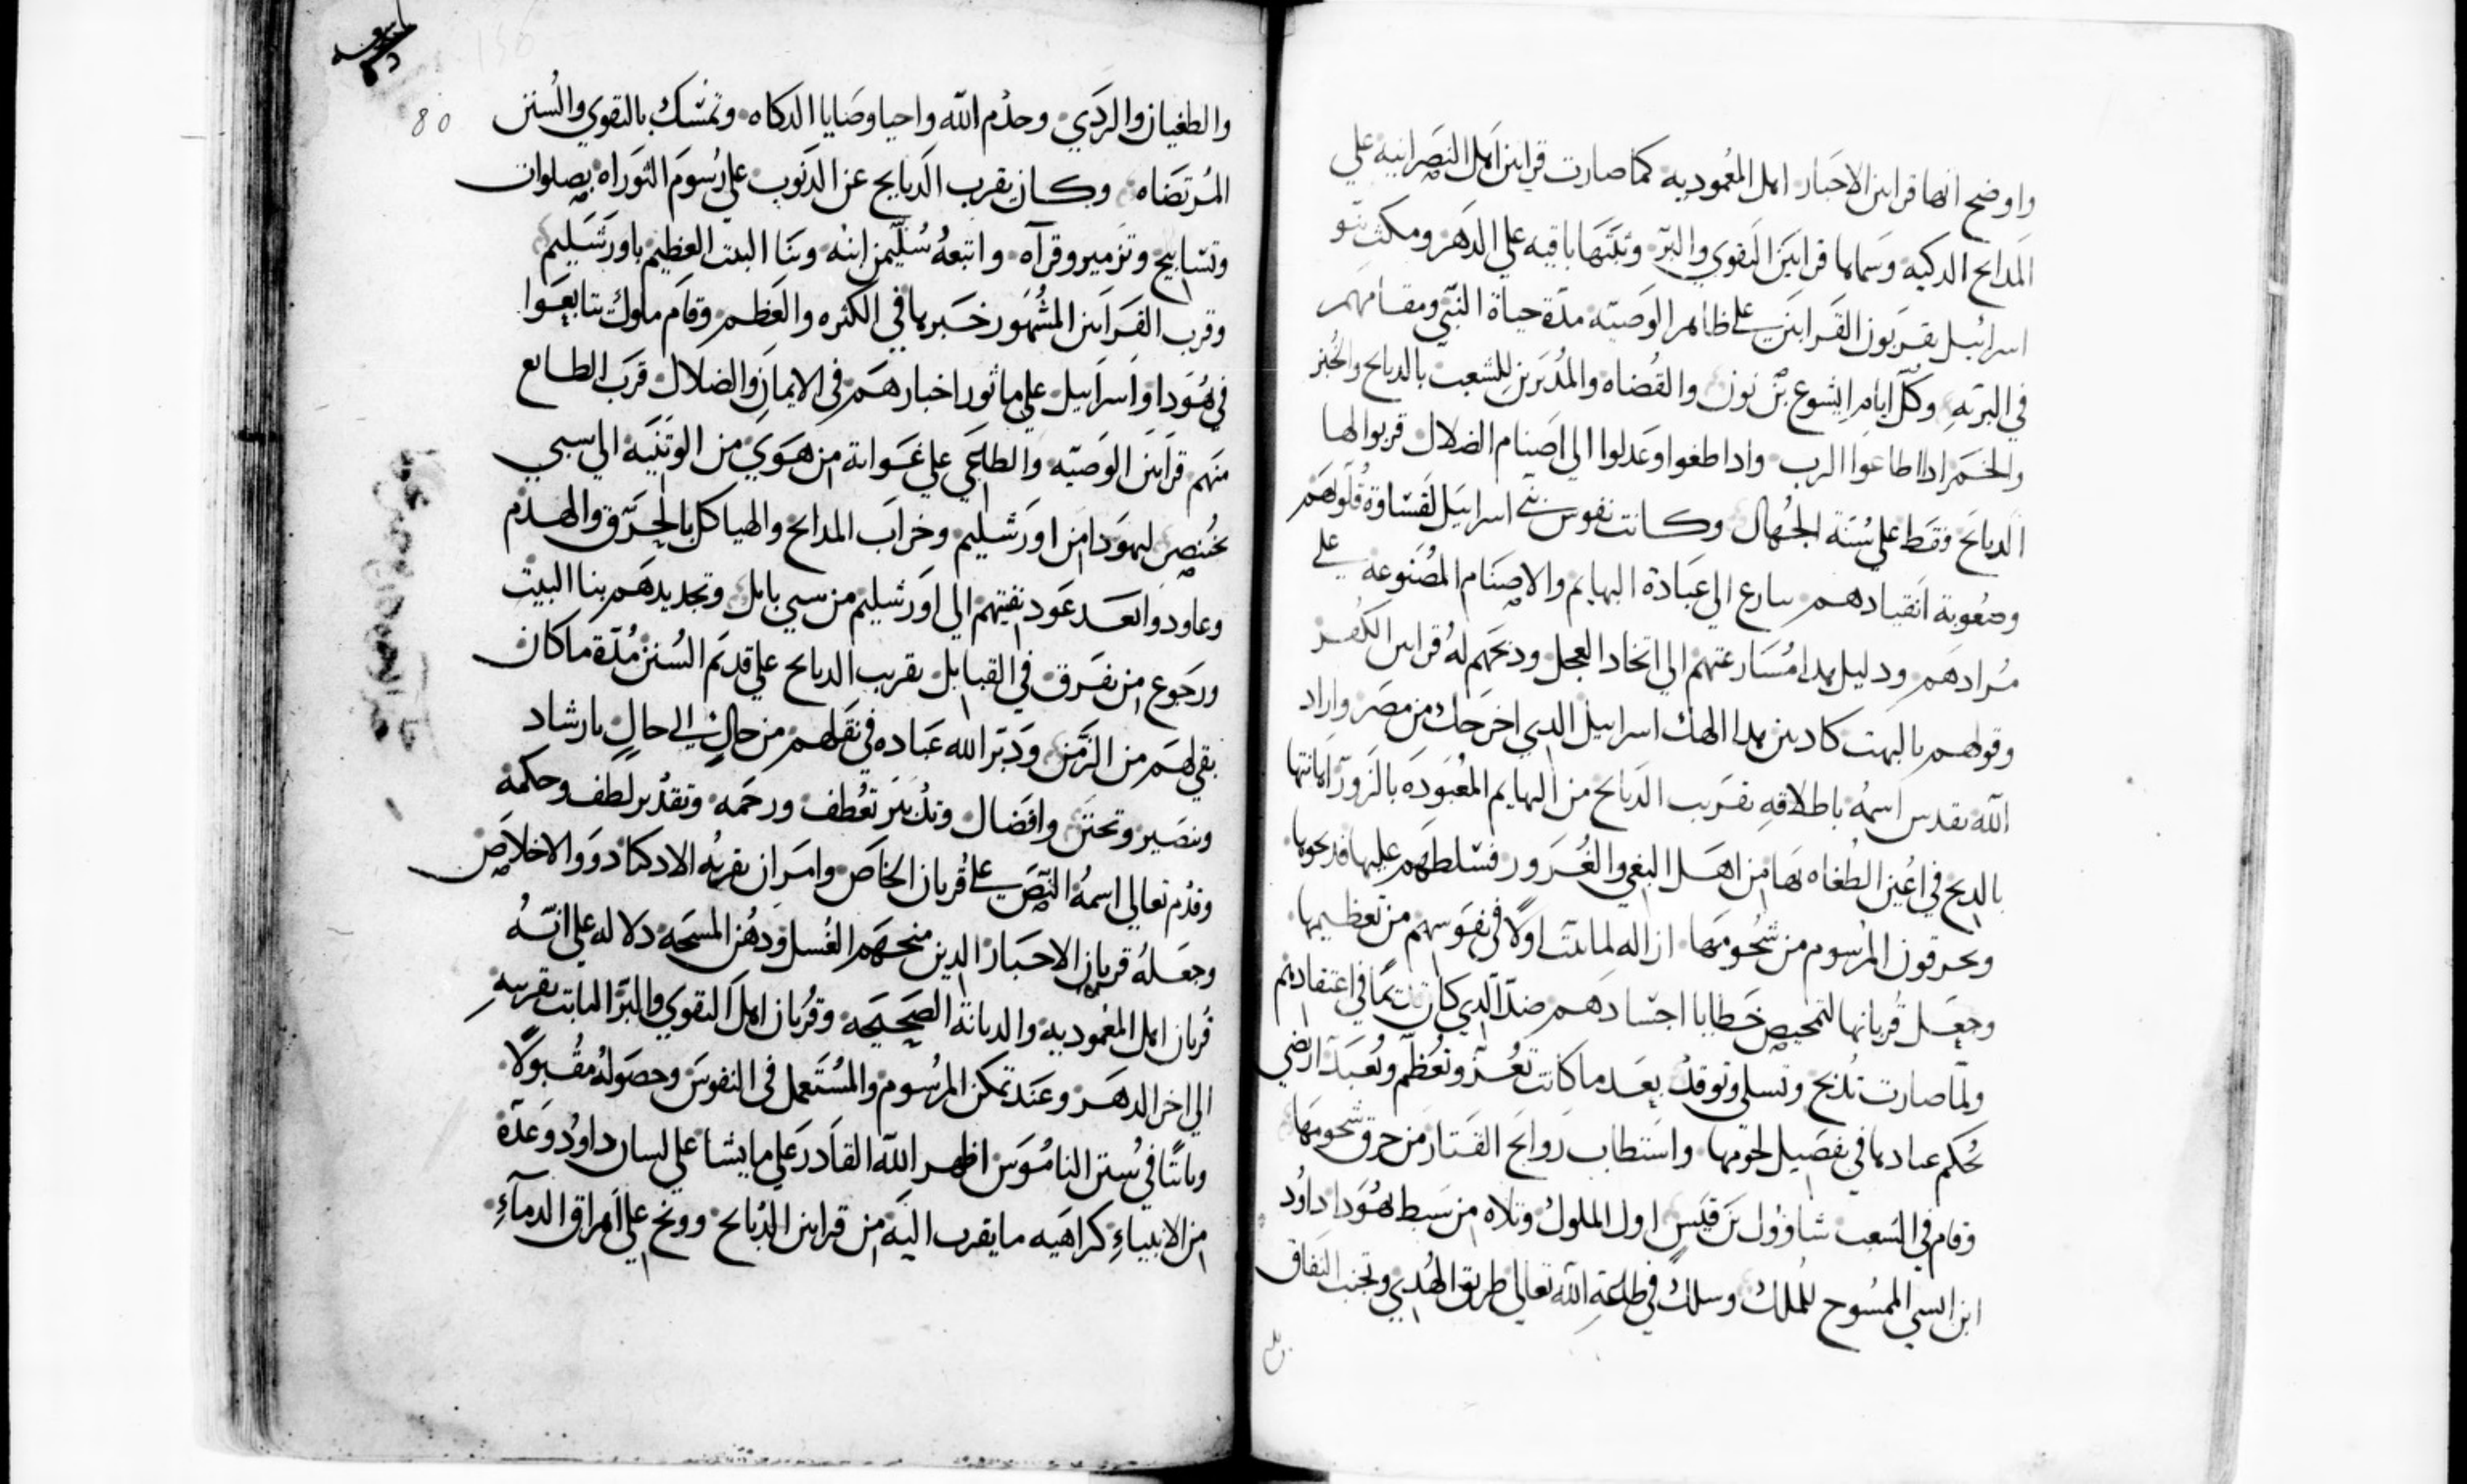 واوضح انها قرابين الاحبار اهل المعموديه كما صارت قرابين اهل النصرانيه علي
المدابح الدكيه وسماها قرابين التقوي والبر وثبتها باقيه علي الدهر ومكث بنو
اسرائيل يقربون القرابين علي ظاهر الوصيه مدة حياة النبي ومقامهم
في البريه وكل ايام ايشوع بن نون والقضاه والمدبرين للشعب بالدبايح والخبز
والخمر ادا اطاعوا الرب وادا طغوا وعدلوا الي اصنام الضلال قربوا لها
الدبايح فقط علي سنة الجهال وكانت نفوس بني اسراييل لقساوة قلوبهم
وصعوبة انقيادهم سارع الي عبادة البهايم والاصنام المصنوعه علي
مرادهم ودليل هدا مسارعتهم الي اتخاد العجل ودبحهم له قرابين الكفر
وقولهم بالبهت كادبين هدا الهك اسراييل الدي اخرجك من مصر واراد
الله تقدس اسمه باطلاقه تقريب الدبايح من البهايم المعبوده بالزور اهانتها
بالدبح في اعين الطغاه بها من اهل البغي والغرور فسلطهم عليها فدبحوها
ويحرقون المرسوم من شحومها ازاله لما ثبت اولًا في نفوسهم من تعظيمها
وجعل قربانها لتمحيص خطايا اجسادهم ضد الدي كان في اعتقادهم
ولما صارت تدبح وتسلي وتوقد بعد ما كانت تعز وتعظم وتعبد ارتضي
بحكم عبادها في تفصيل لحومها واستطاب روايح القتار من حرق شحومها
وقام في الشعب شاوول بن قيس اول الملوك وتلاه من سبط يهودا داود
ابن ايسي الممسوح للملك وسلك في طاعة الله تعالي طريق الهدي وتجنب النفاق
والطغيان والردي وخدم الله واحيا وصايا الدكاه وتمسك بالتقوي والسنن
80
المرتضاه وكان يقرب الدبايح عن الدنوب علي رسوم التوراه بصلوات
وتسابيح وتزمير وقرآه واتبعه سليمن ابنه وبنا البيت العظيم باورشليم
وقرب القرابين المشهور خبرها في الكثره والعظم وقام ملوك تتابعوا
في هودا واسراييل علي ماثور اخبارهم في الايمان والضلال قرب الطايع
منهم قرابين الوصيه والطاغي علي غواية من هوي من الوثنيه الي سبي
بختنصر ليهودا من اورشليم وخراب المدابح والهياكل بالحرق والهدم
وعاودوا بعد عود بقيتهم الي اورشليم من سبي بابل وتجديدهم بنا البيت
ورجوع من تفرق في القبايل تقريب الدبايح علي قديم السنن مدة ما كان
بقي لهم من الزمن ودبر الله عباده في نقلهم من حال الي حال بارشاد
وتبصير وتحنن وافضال وتدبير تعطف ورحمه وتقدير لطف وحكمه
وقدم تعالي اسمه النص علي قربان الخاص وامر ان يقربه الادكيا دوو الاخلاص
وجعله قربان الاحبار الدين منحهم الغسل ودهن المسحه دلاله علي انه
قربان اهل المعموديه والديانة الصحيحه وقربان اهل التقوي والبر الثابت تقريبه
الي اخر الدهر وعند تمكن المرسوم والمستعمل في النفوس وحصوله مقبولًا
وثابتًا في سنن الناموس اظهر الله القادر علي ما يشا علي لسان داود وعدة
من الانبياءِ كراهيه ما يقرب اليه من قرابين الدبايح ووبخ علي اهراق الدمآءِ